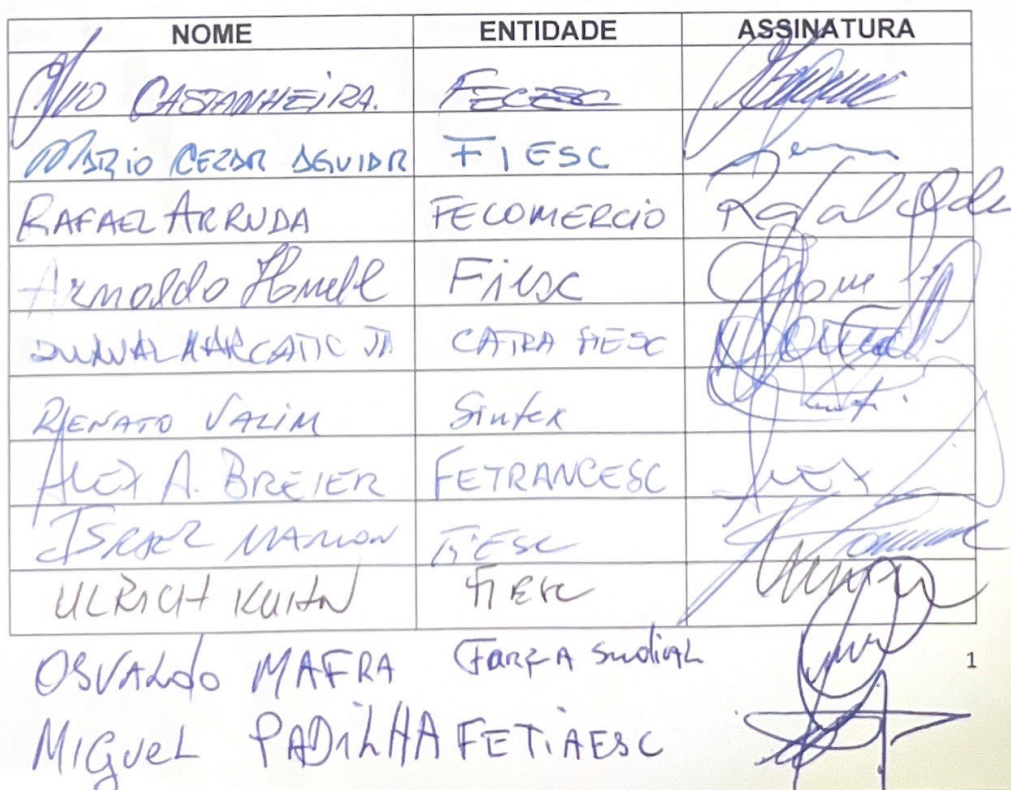 NOME ENTIDADE ASSINATURA
Ivo CASTANHEIRA. FECESC
MARIO CEZAR AGUIAR FIESC
RAFAEL ARRUDA FECOMERCIO
Arnaldo Fiesc
DURVAL MARCATTO JR CATRA FIESC
RENATO VALIM Sintex
ALEX A. BREIER FETRANCESC ALEX
ISRAEL MARCON FIESC
ULRICH KUHN FIESC
OSVALDO MAFRA FORÇA Sindical
1
MIGUEL PADILHA FETIAESC